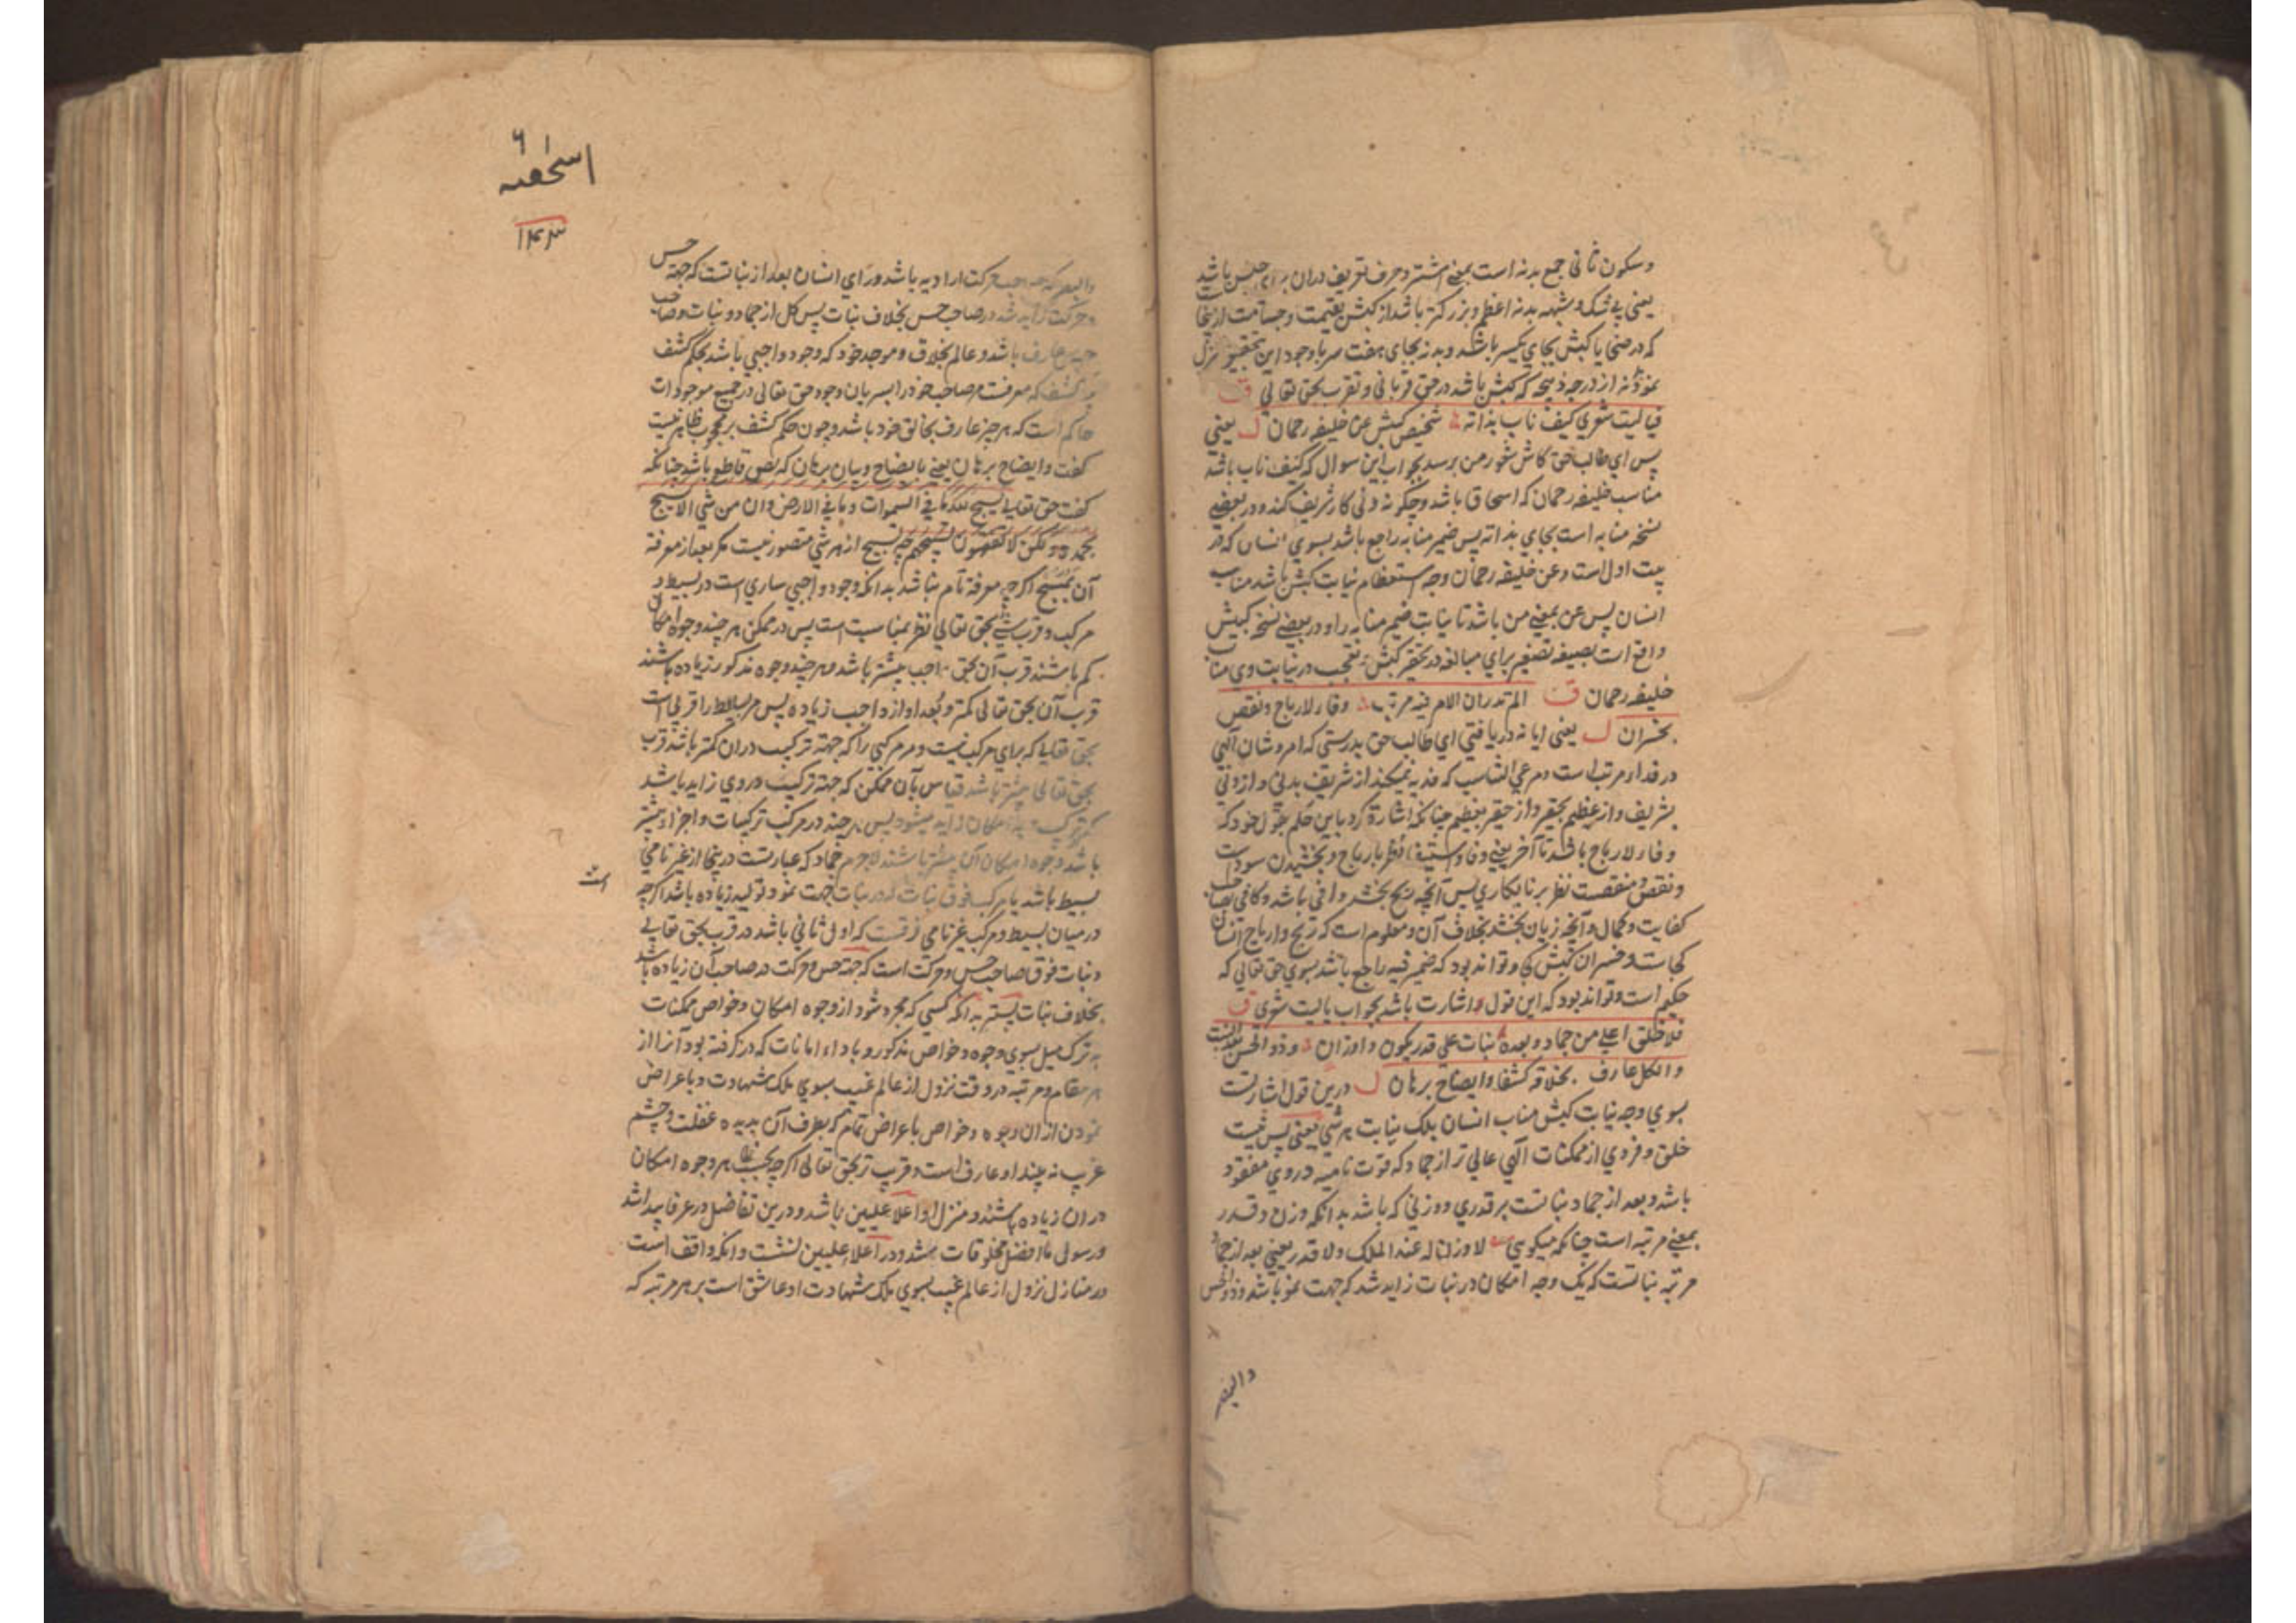 وسکون ثانی جمع بدنه است بمعنی اشتر و حرف تعریف دران برای جنس باشد
یعنی بی شک و شبهه بدنه اعظم و بزرکتر باشد از کبش بقیمت و جسامت ازینجاست
که در ضحایا کبش بجای یکسر باشد و بدنه بجای هفت سر با وجود این تحقیق نزل
نمود بدنه از درجه ذبیحه که کبش باشد در حق قربانی و تقرب بحق تعالی ق
فیالیت شعری کیف ناب بذاته شخیص کبش عن خلیفه رحمان ل یعنی
پس ای طالب حق کاش شعور من برسد بجواب این سوال که کیف ناب باشد
مناسب خلیفه رحمان که اسحاق باشد و چکونه دنی کار شریف کند و در بعضی
نسخه منابه است بجای بذاته پس ضمیر منابه راجع باشد بسوی انسان که در
بیت اول است وعن خلیفه رحمان وجه استعظام نیابت کبش باشد مناب
انسان پس عن بمعنی من باشد تا بیابت ضمیر منابه را و در بعضی نسخه کبیش
واقع است بصیغه تصغیر برای مبالغه در تحقیر کبش و تعجب در نیابت وی مناب
خلیفه رحمان ق الم تدر ان الامر فیه مرتب وفاء لارباح ونقص
بخسران ل یعنی ایا نه دریافتی ای طالب حق بدرستی که امر و شان آلهی
در فداء مرتب است ومرعی التناسب که فدیه نمیکند از شریف بدنی و از دنی
بشریف و از عظیم بحقیر و از حقیر بعظیم چنانکه اشارة کرد باین حکم بقول خود که
وفاء لارباح باشد تا آخر یعنی وفا و استیفا نظر بارباح و بخشیدن سود است
ونقص و منقصت نظر بر زیانکاری پس آنچه ربح بخشد وافی باشد و کافی بصاحب
کفایت و کمال و آنچه زیان بخشد بخلاف آن و معلوم است که ربح و ارباح انسان
کجاست و خسران کبش کجا و تواند بود که ضمیر فیه راجع باشد بسوی حق تعالی که
حکیم است و تواند بود که این قول اشارت باشد بجواب یالیت شعری ق
فلا خلق اعلی من جماد وبعده نبات علی قدر یکون و اوزان وذو الحس بعد النبت
والکل عارف بخلاقه کشفا وایضاح برهان ل درین قول اشارتست
بسوی وجه نیابت کبش مناب انسان بلک نیابت هر شی یعنی پس نیست
خلق و فردی از ممکنات آلهی عالی تر از جماد که قوت نامیه در وی مفقود
باشد و بعد از جماد نباتست بر قدری و وزنی که باشد بدانکه وزن و قدر
بمعنی مرتبه است چنانکه میکویی لا وزن له عند الملک ولا قدر یعنی بعد از جماد
مرتبه نباتست که یک وجه امکان در نبات زاید شد که جهت نمو باشد وذو الحس
والبصر
اسحقیه
۱۴۳
والبصر که صاحب حرکت ارادیه باشد ورای انسان بعد از نباتست که جهة حس
و حرکت زاید شد در صاحب حس بخلاف نبات پس کل از جماد و نبات و صاحب
حس عارف باشد و عالم بخلاق و موجد خود که وجود واجبی باشد بحکم کشف
که معرفت مر صاحب خود را بسریان وجود حق تعالی در جمیع موجودات
حاکم است که هر چیز عارف بخالق خود باشد و چون حکم کشف بر محجوب ظاهر نیست
کفت وایضاح برهان یعنی بایضاح و بیان برهان که نص قاطع باشد چنانکه
کفت حق تعالی یسبح لله ما فی السموات وما فی الارض وان من شی الا یسبح
بحمده ولکن لا تفقهون تسبیحهم چه تسبیح از هر شی متصور نیست مکر بعد از معرفة
آن مسبح اکرچه معرفة تام نباشد بدانکه وجود واجبی ساری است در بسیط و
مرکب و قرب شی بحق تعالی نظر بمناسبت است پس در ممکن هر چند وجوه امکان
کم باشند قرب آن بحق واجب بیشتر باشد و هر چند وجوه مذکور زیاده باشند
قرب آن بحق تعالی کمتر و بُعد او از واجب زیاده پس مر بسایط را قربی است
بحق تعالی که برای مرکب نیست و مر مرکبی را که جهة ترکیب دران کمتر باشد قرب
بحق تعالی بیشتر باشد قیاس بآن ممکن که جهة ترکیب در وی زاید باشد
که ترکیب امکان زاید میشود پس هر چند در مرکب ترکیبات و اجزاء بیشتر
باشد وجوه امکان آن بیشتر باشند لاجرم جماد که عبارتست درینجا از غیر نامی
است
بسیط باشد یا مرکب فوق نبات که در نبات جهت نمو و تولید زیاده باشد اکرچه
در میان بسیط و مرکب غیر نامی فرقست که اول ثانی باشد در قرب بحق تعالی
و نبات فوق صاحب حس و حرکت است که جهة حس و حرکت در صاحب آن زیاده باشد
بخلاف نبات پستر بدانکه کسی که مجرد شود از وجوه امکان و خواص ممکنات
به ترک میل بسوی وجوه و خواص مذکور و باداء امانات که در کرفته بود آنرا از
هر مقام و مرتبه در وقت نزول از عالم غیب بسوی ملک شهادت و باعراض
نمودن از ان وجوه و خواص باعراض تمام که بطرف آن بدیده غفلت و چشم
غریب نه بیند او عارف است و قریب تر بحق تعالی اکرچه بحسب هر وجوه امکان
دران زیاده باشند و منزل او اعلا علیین باشد و درین تفاضل در عرفا پیدا شد
و رسول ما افضل مخلوقات شد و در اعلاء علیین نشست و آنکه واقف است
در منازل نزول از عالم غیب بسوی ملک شهادت او عاشق است بر هر مرتبه که